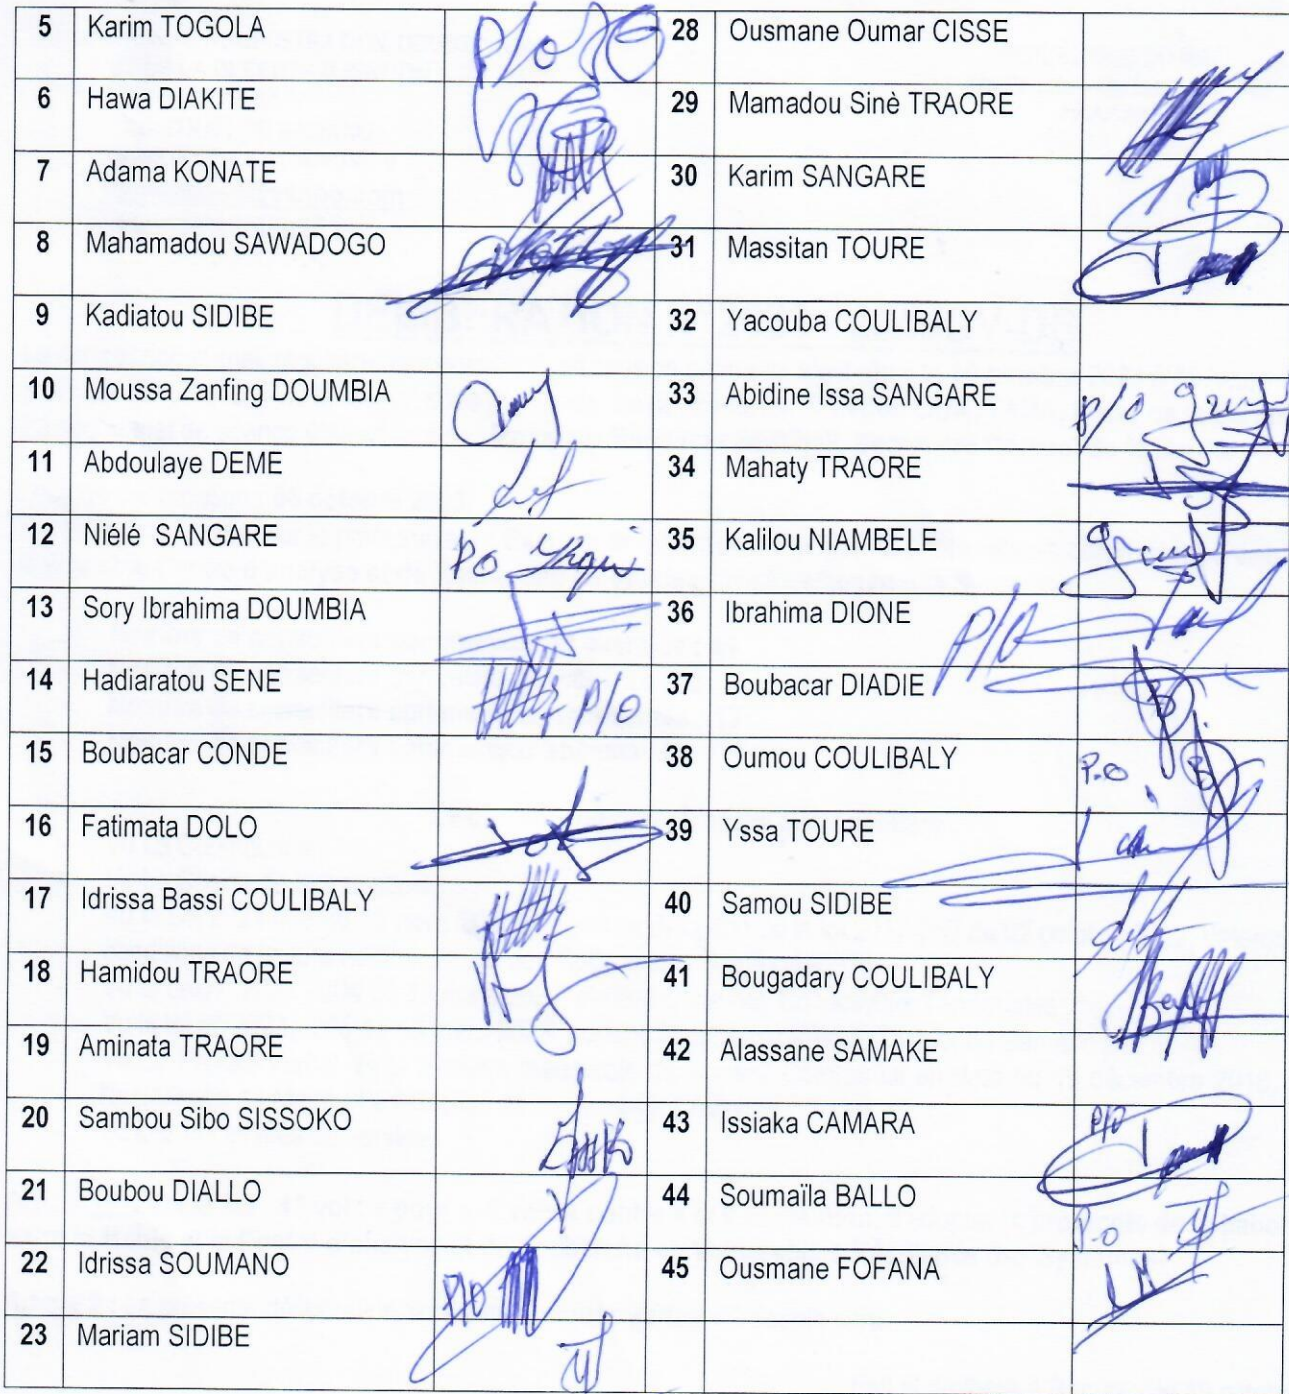 5 Karim TOGOLA P/o 28 Ousmane Oumar CISSE
6 Hawa DIAKITE 29 Mamadou Sinè TRAORE
7 Adama KONATE 30 Karim SANGARE
8 Mahamadou SAWADOGO 31 Massitan TOURE
9 Kadiatou SIDIBE 32 Yacouba COULIBALY
10 Moussa Zanfing DOUMBIA 33 Abidine Issa SANGARE P/o
11 Abdoulaye DEME 34 Mahaty TRAORE
12 Niélé SANGARE PO 35 Kalilou NIAMBELE
13 Sory Ibrahima DOUMBIA 36 Ibrahima DIONE P/o
14 Hadiaratou SENE P/o 37 Boubacar DIADIE
15 Boubacar CONDE 38 Oumou COULIBALY P.o
16 Fatimata DOLO 39 Yssa TOURE
17 Idrissa Bassi COULIBALY 40 Samou SIDIBE
18 Hamidou TRAORE 41 Bougadary COULIBALY
19 Aminata TRAORE 42 Alassane SAMAKE
20 Sambou Sibo SISSOKO 43 Issiaka CAMARA P/o
21 Boubou DIALLO 44 Soumaïla BALLO P.o
22 Idrissa SOUMANO P/o 45 Ousmane FOFANA
23 Mariam SIDIBE